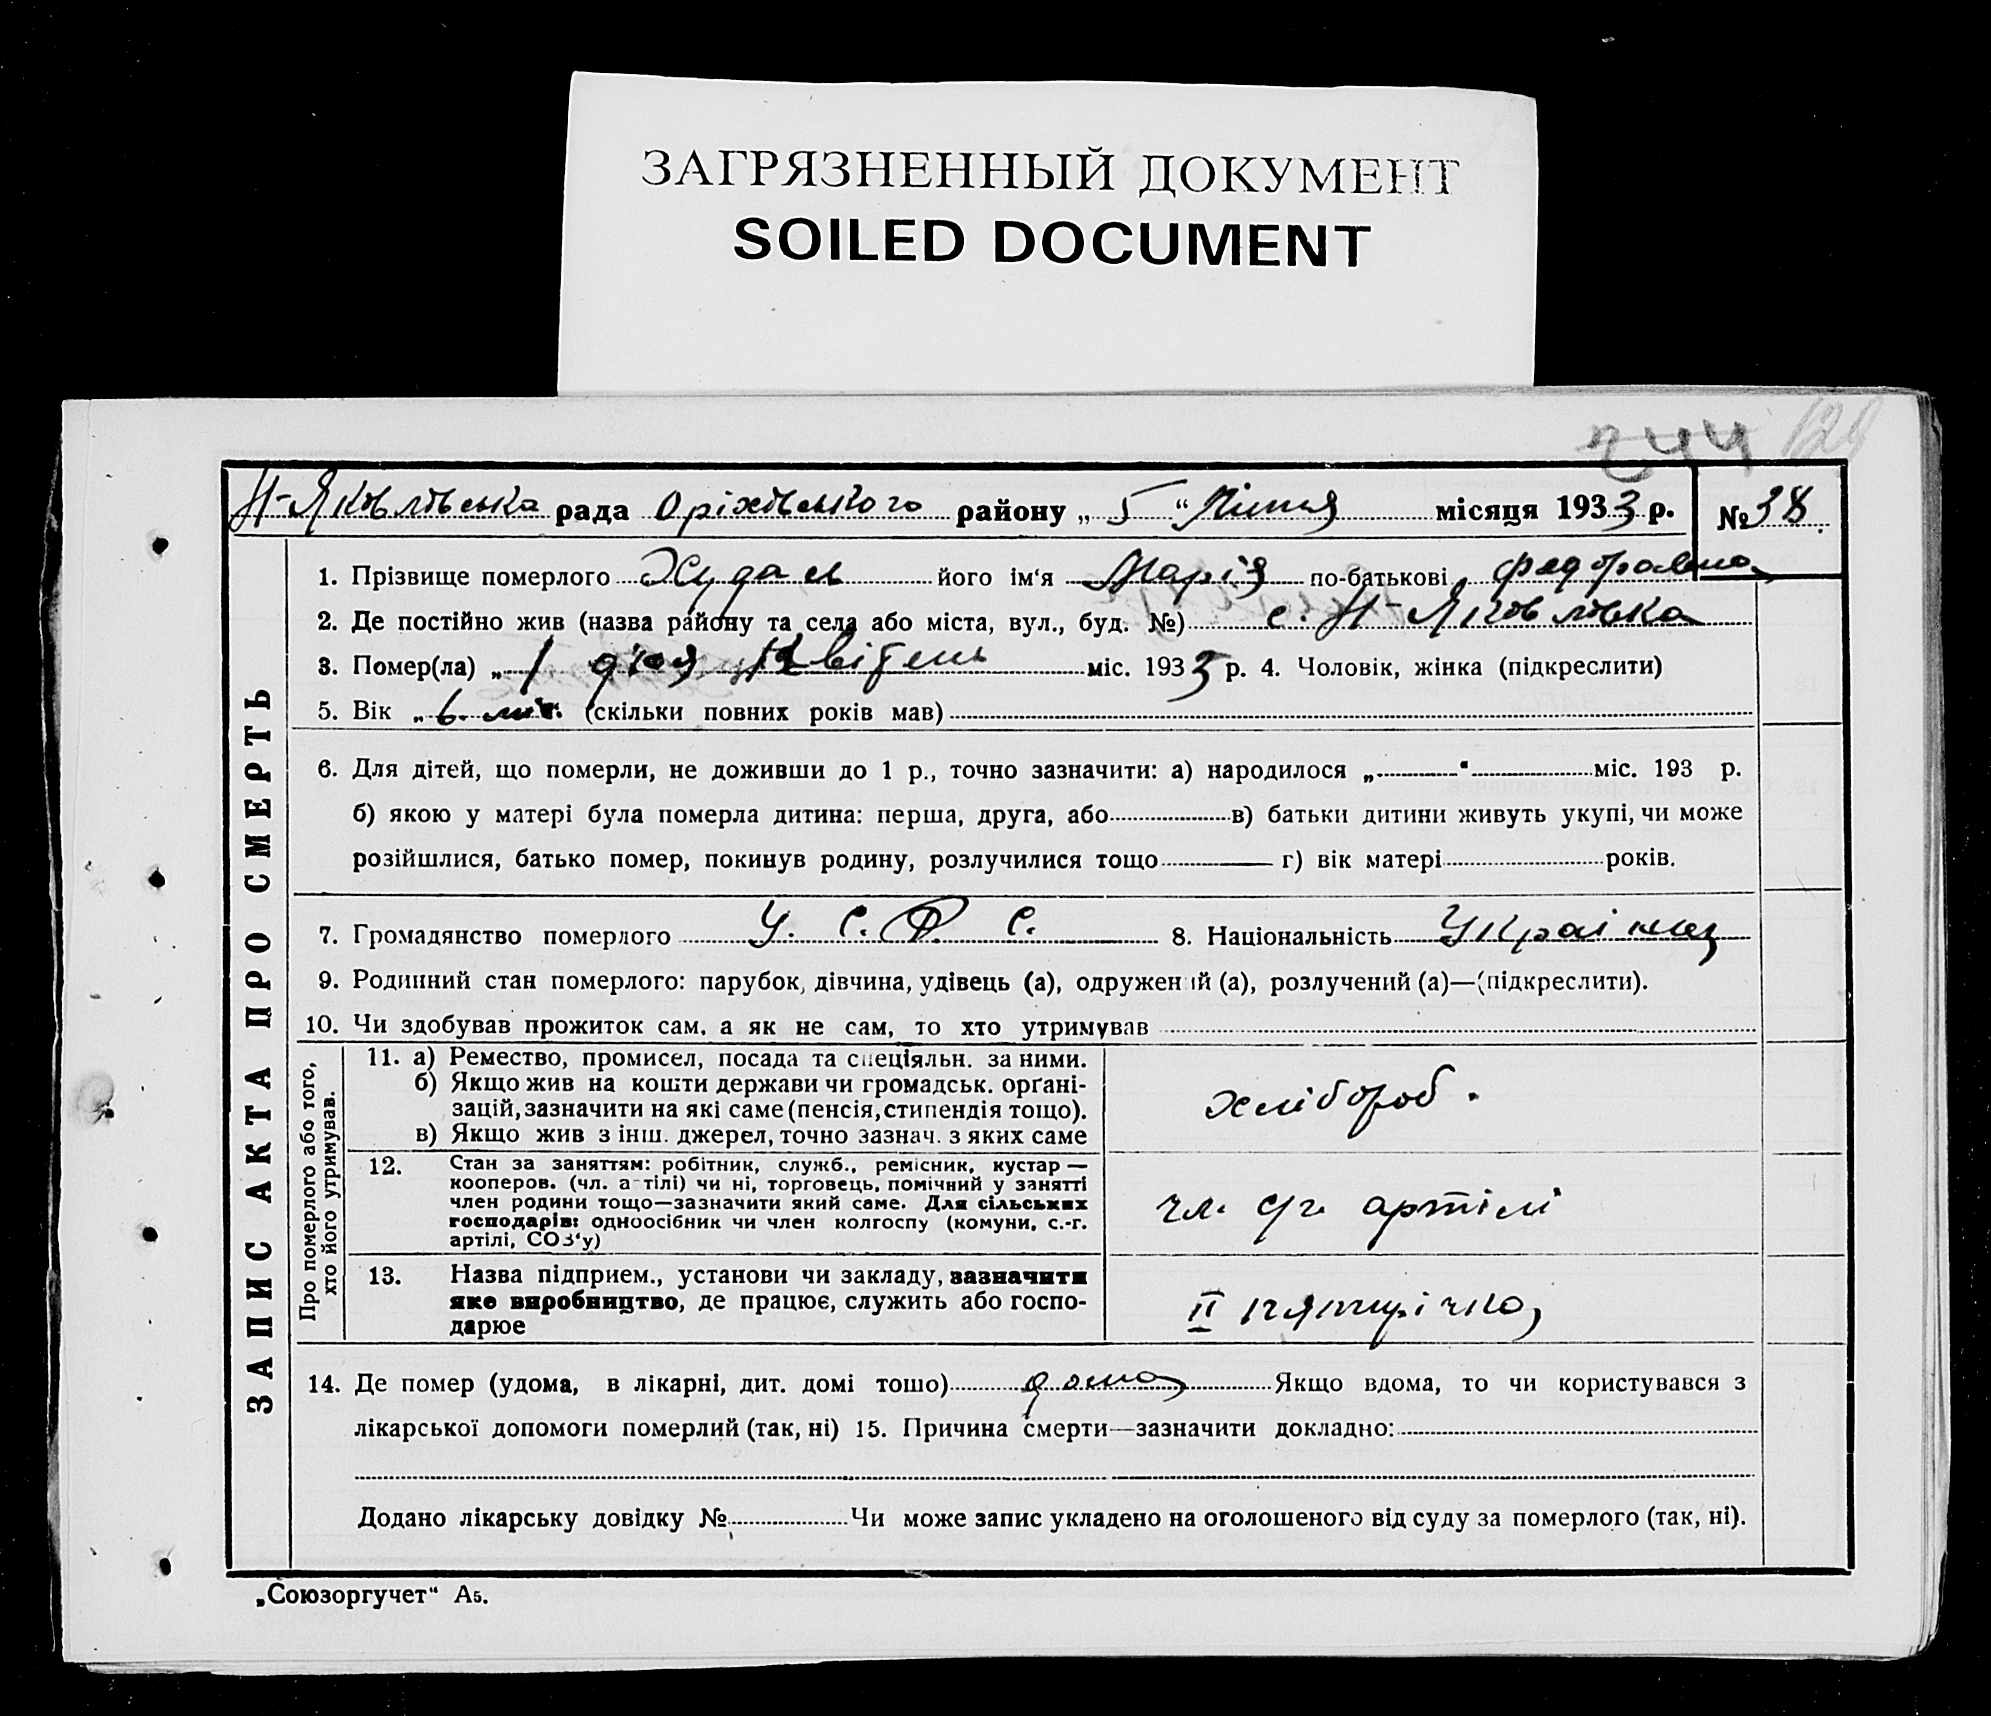 ЗАГРЯЗНЕННЫЙ ДОКУМЕНТ
SOILED DOCUMENT
244
Н-Яковлівська рада Оріхівського району „ 5 “ Липня місяця 1933 р. № 38
ЗАПИС АКТА ПРО СМЕРТЬ
1. Прізвище померлого Худа його ім‘я Марія по-батькові Федоровна
2. Де постійно жив (назва району та села або міста, вул., буд. №) с. Н-Яковлівка
3. Помер(ла) „ 1 дня Квітень міс. 1933 р. 4. Чоловік, жінка (підкреслити)
5. Вік „ 6 літ. (скільки повних років мав)
6. Для дітей, що померли, не доживши до 1 р., точно зазначити: а) народилося „ “ міс. 193 р.
б) якою у матері була померла дитина: перша, друга, або в) батьки дитини живуть укупі, чи може
розійшлися, батько помер, покинув родину, розлучилися тощо г) вік матері років.
7. Громадянство померлого У. С. Р. С. 8. Національність Українка
9. Родинний стан померлого: парубок, дівчина, удівець (а), одружений (а), розлучений (а)—(підкреслити).
10. Чи здобував прожиток сам, а як не сам, то хто утримував
Про померлого або того,
хто його утримував.
11. а) Ремество, промисел, посада та спеціяльн. за ними.
б) Якщо жив на кошти держави чи громадськ. орґані-
зацій, зазначити на які саме (пенсія, стипендія тощо).
в) Якщо жив з інш. джерел, точно зазнач. з яких саме
хлібороб.
12. Стан за заняттям: робітник, служб., ремісник, кустар —
кооперов. (чл. а тілі) чи ні, торговець, помічний у занятті
член родини тощо—зазначити який саме. Для сільських
господарів: одноосібник чи член колгоспу (комуни, с.-г.
артілі, СОЗ‘у)
чл. с/г. артілі
13. Назва підприєм., установи чи закладу, зазначити
яке виробництво, де працює, служить або госпо-
дарює
II пятирічка
14. Де помер (удома, в лікарні, дит. домі тошо) дома Якщо вдома, то чи користувався з
лікарської допомоги померлий (так, ні) 15. Причина смерти—зазначити докладно:
Додано лікарську довідку № Чи може запис укладено на оголошеного від суду за померлого (так, ні).
„Союзоргучет“ А5.